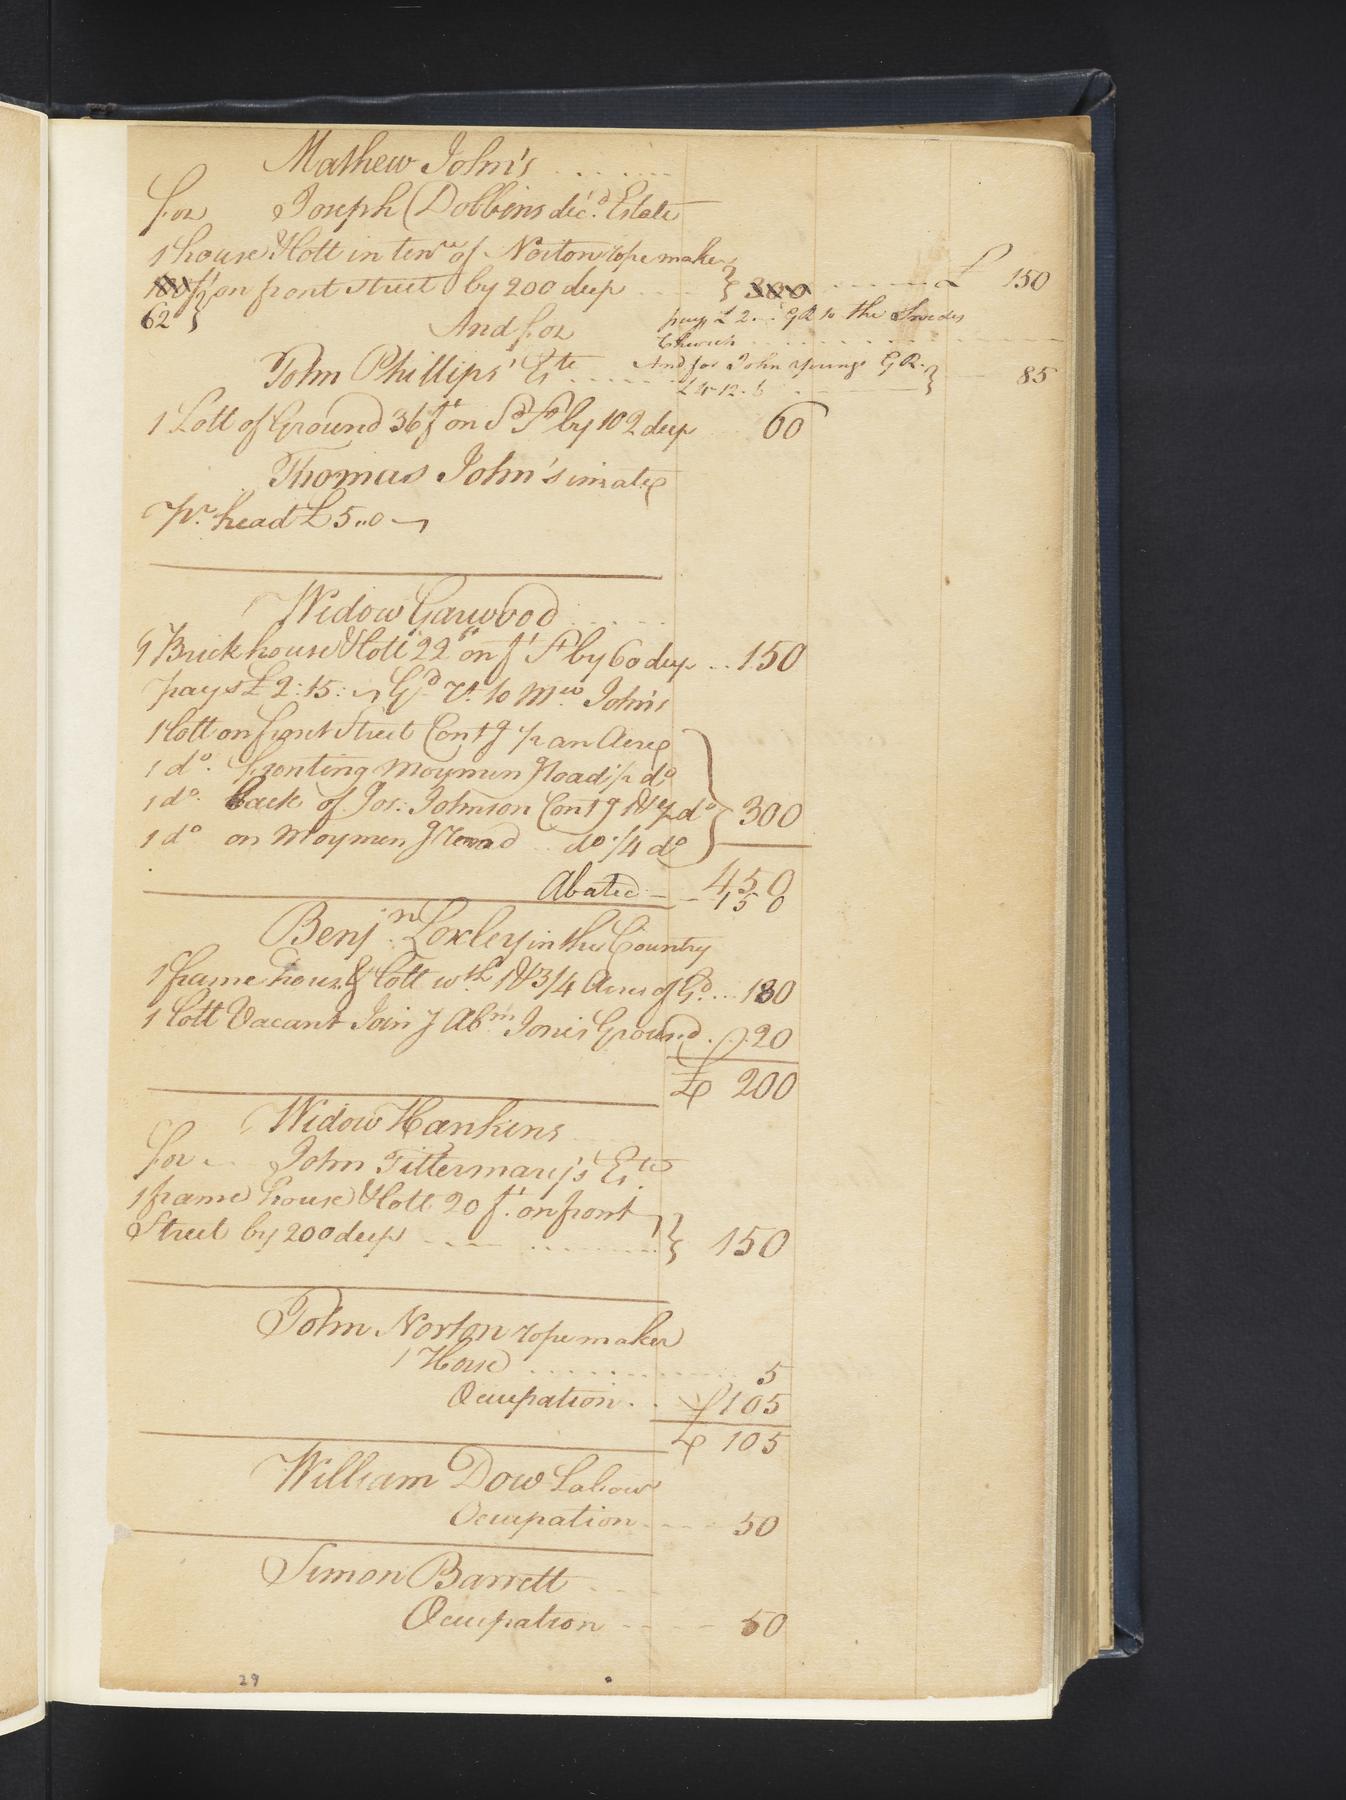 Mathew John's . . . . . .
for Joseph Dobbins dec.d Estate
1 house & Lott in ten.re of Norton rope maker
100 ft on front street by 200 deep } 300 . . . . . £ 150
62 }
And for pays £ 2 . . G R to the Swedes
Church
John Phillips' Este . . . . And for John Youngs G R. } 85
£ 4-12-6
1 Lott of Ground 36 ft on Sd St by 102 deep 60
Thomas John's inmate
pr. head £ 5 ,, 0
Widow Garwood . . . . .
1 Brick house & Lott 22 ft on ft St by 60 deep . . 150
pays £ 2 : 15 : Gd Rt. to Mw. John's
1 Lott on front Street Contg 1/2 an Acre
1 do. fronting Moymen g Road 1/2 do
1 do. back of Jos: Johnson Contg 1 & 1/2 do } 300
1 do on Moymen g Road . . do. 1/4 do
450
Abated - - 150
Benjn. Loxley in the Country
1 frame house & Lott wth 1 & 3/4 Acres of Gd. . . 180
1 Lott Vacant Join g Abm Jones Ground . . 20
£ 200
Widow Hankins
for . . John Tittermary's Este.
1 frame house & Lott 20 ft. on front
Street by 200 deep . . . . . } 150
John Norton rope maker
1 Horse . . . . . . 5
Occupation . . 105
£ 105
William Dow Labour
Occupation - - - 50
Simon Barrett
Occupation - - - - 50
29